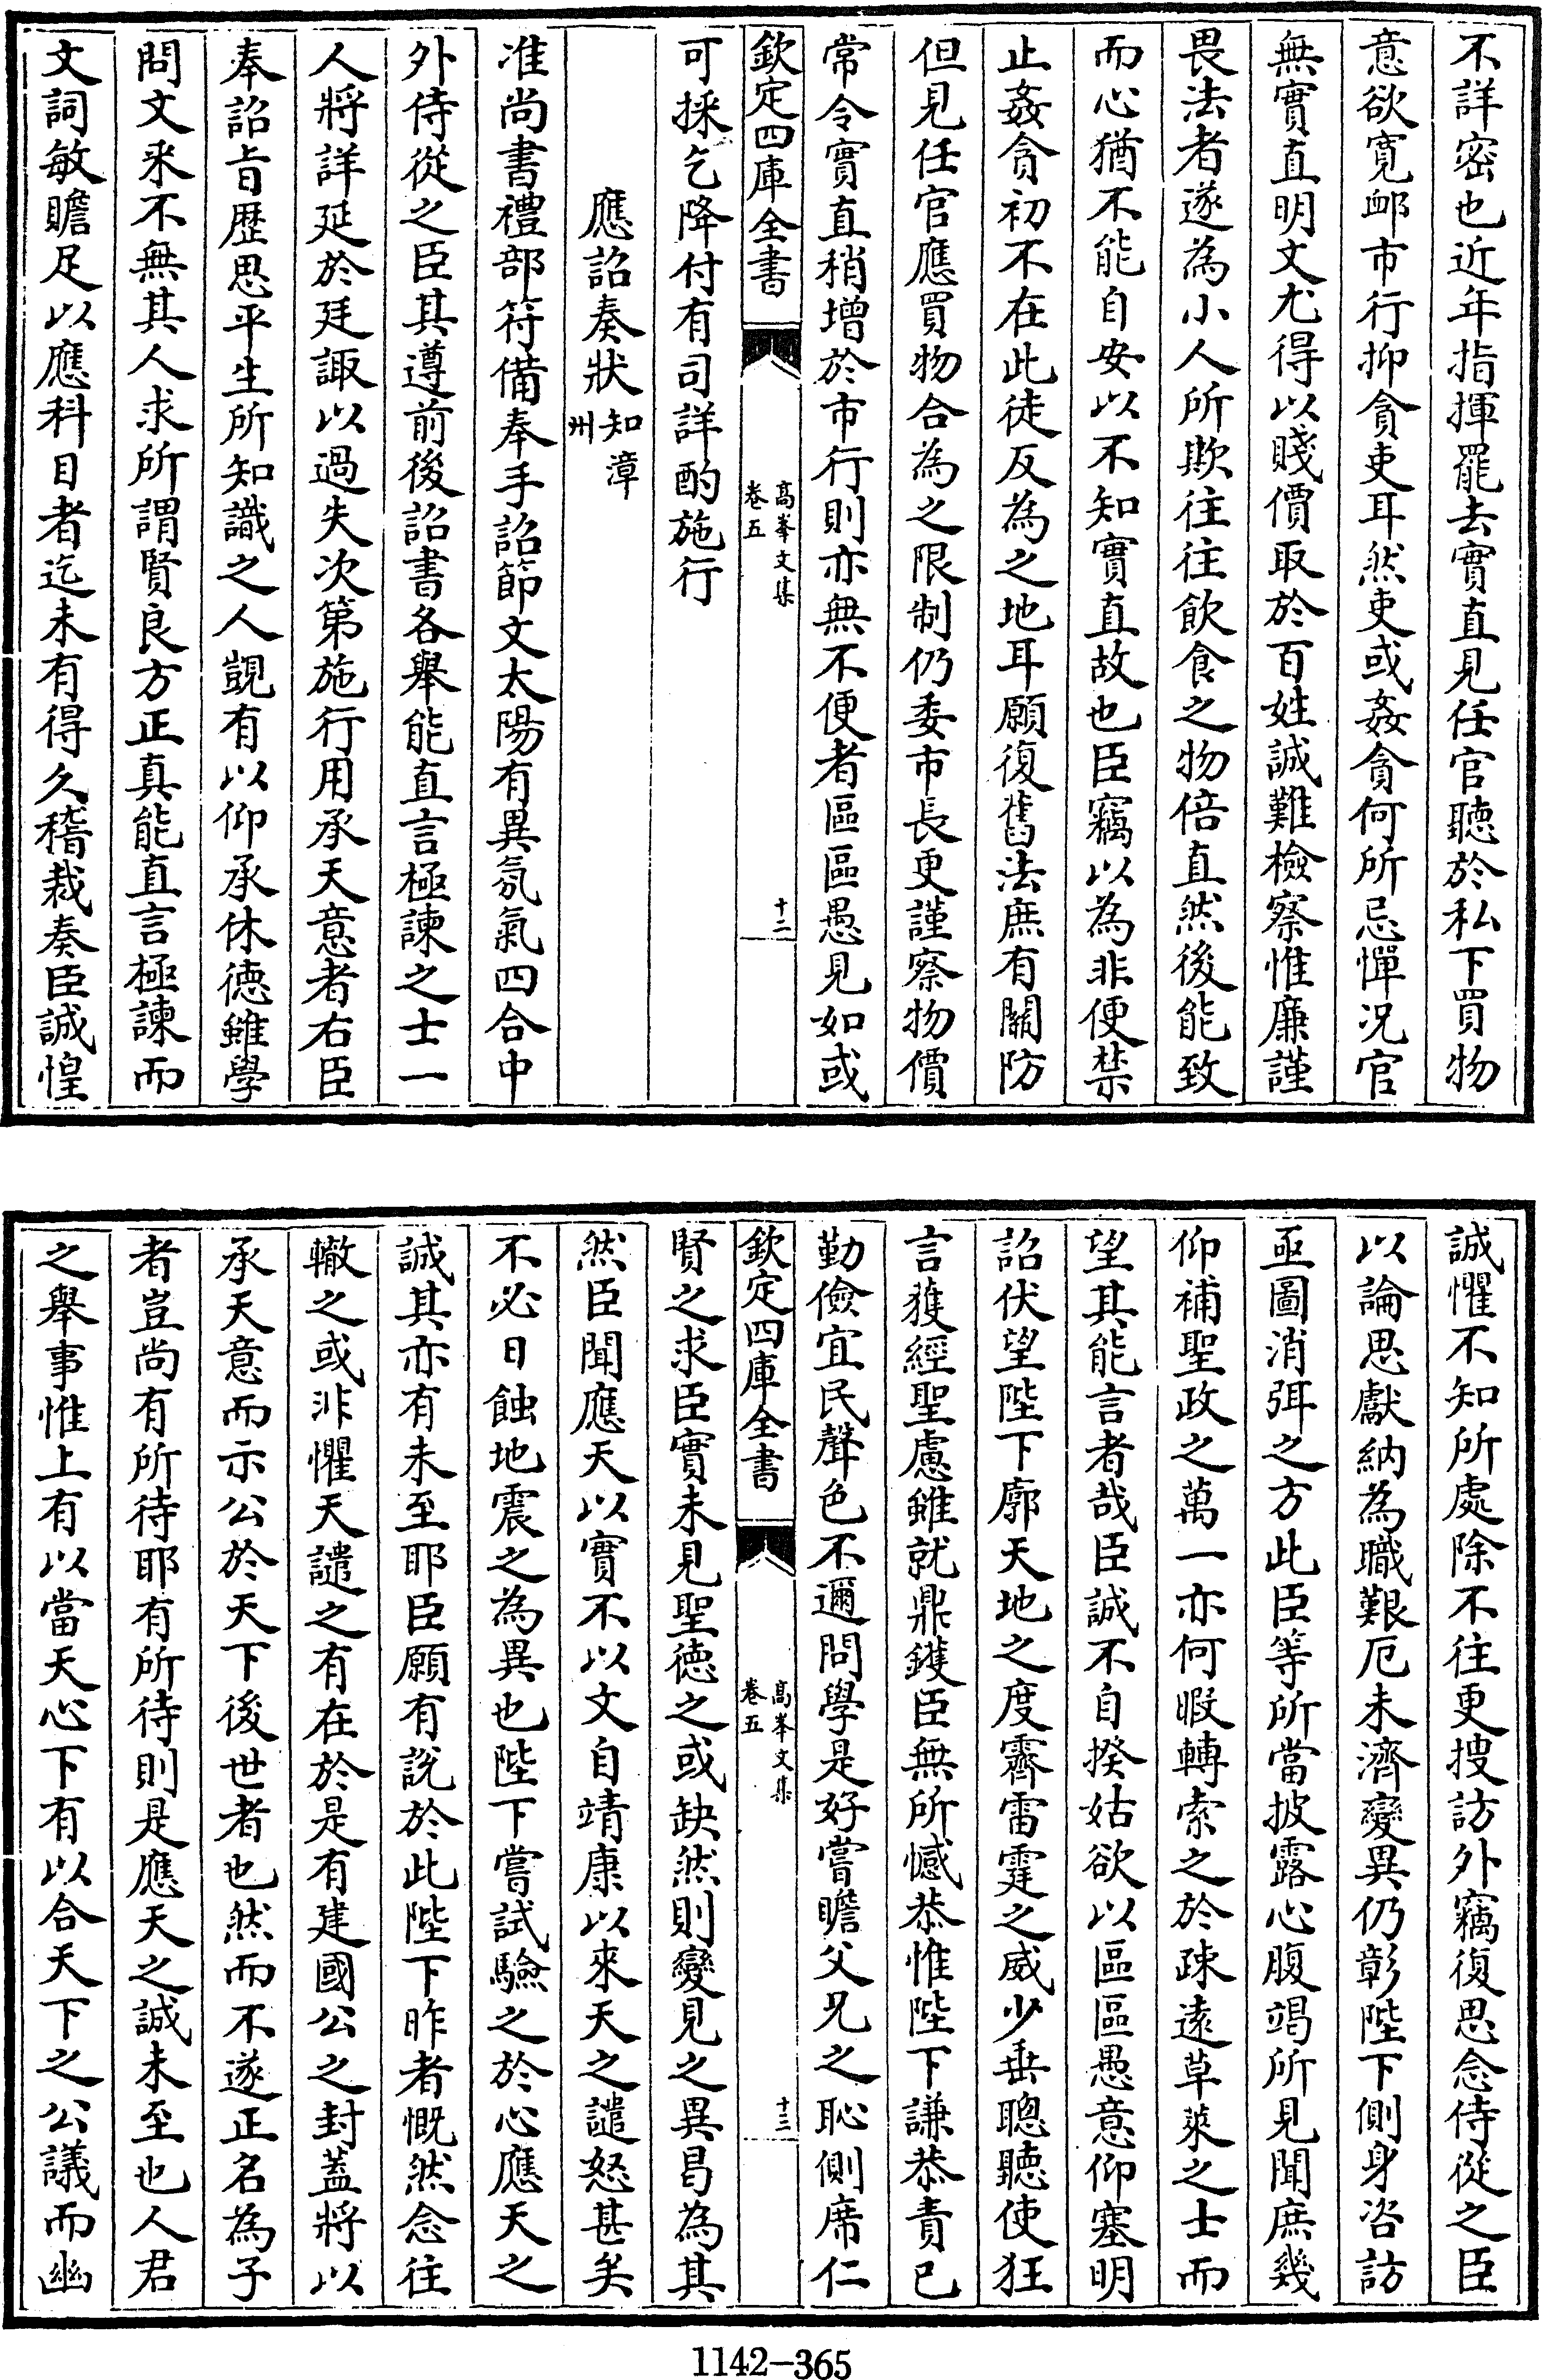 不詳密也近年指揮罷去實直見任官聽於私下買物
意欲寛䘏市行抑貪吏耳然吏或姦貪何所忌憚況官
無實直明文尤得以賤價取於百姓誠難檢察惟廉謹
畏法者遂為小人所欺往往飲食之物倍直然後能致
而心猶不能自安以不知實直故也臣竊以為非便禁
止姦貪初不在此徒反為之地耳願復舊法庶有關防
但見任官應買物合為之限制仍委市長更謹察物價
常令實直稍增於市行則亦無不便者區區愚見如或
欽定四庫全書
高峯文集
卷五
十二
可採乞降付有司詳酌施行
應詔奏狀知漳
州
准尚書禮部符備奉手詔節文太陽有異氛氣四合中
外侍從之臣其遵前後詔書各舉能直言極諫之士一
人將詳延於廷諏以過失次第施行用承天意者右臣
奉詔㫖歴思平生所知識之人覬有以仰承休德雖學
問文采不無其人求所謂賢良方正真能直言極諫而
文詞敏贍足以應科目者迄未有得久稽裁奏臣誠惶
誠懼不知所處除不往更搜訪外竊復思念侍從之臣
以論思獻納為職艱厄未濟變異仍彰陛下側身咨訪
亟圖消弭之方此臣等所當披露心腹竭所見聞庶幾
仰補聖政之萬一亦何暇轉索之於疎逺草萊之士而
望其能言者哉臣誠不自揆姑欲以區區愚意仰塞明
詔伏望陛下廓天地之度霽雷霆之威少垂聰聽使狂
言獲經聖慮雖就鼎鑊臣無所憾恭惟陛下謙恭責已
勤儉宜民聲色不邇問學是好嘗瞻父兄之恥側席仁
欽定四庫全書
高峯文集
卷五
十三
賢之求臣實未見聖徳之或缺然則變見之異曷為其
然臣聞應天以實不以文自靖康以來天之譴怒甚矣
不必日蝕地震之為異也陛下嘗試驗之於心應天之
誠其亦有未至耶臣願有説於此陛下昨者慨然念往
轍之或非懼天譴之有在於是有建國公之封蓋將以
承天意而示公於天下後世者也然而不遂正名為子
者豈尚有所待耶有所待則是應天之誠未至也人君
之舉事惟上有以當天心下有以合天下之公議而幽
1142-365